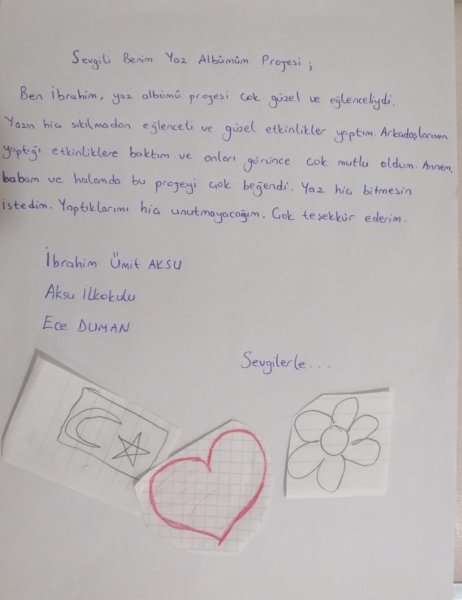 Sevgili Benim Yaz Albümüm Projesi ;
Ben İbrahim, yaz albümü projesi çok güzel ve eğlenceliydi.
Yazın hiç sıkılmadan eğlenceli ve güzel etkinlikler yaptım. Arkadaşlarımın
yaptığı etkinliklere baktım ve onları görünce çok mutlu oldum. Annem,
babam ve halamda bu projeyi çok beğendi. Yaz hiç bitmesin
istedim. Yaptıklarımı hiç unutmayacağım. Çok teşekkür ederim.
İbrahim Ümit AKSU
Aksu İlkokulu
Ece DUMAN
Sevgilerle...